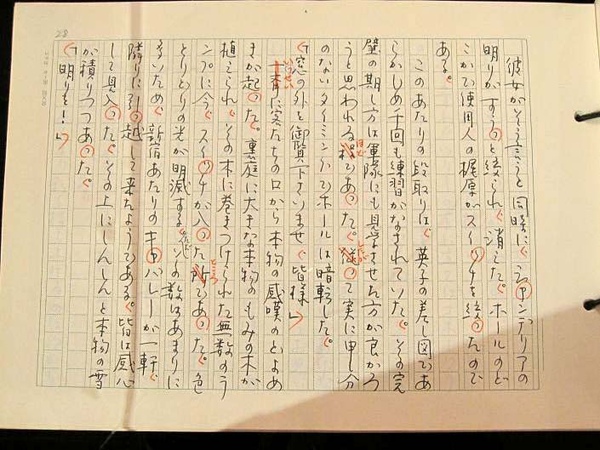 彼女がそう言うと同時に、シャンデリアの
明りがすうっと絞られ、消えた。ホールのど
こかで使用人の梶原がスイッチを絞ったので
ある。
このあたりの段取りは、英子の差し図であ
らかじめ十回も練習がなされていた。その完
璧の期し方は軍隊にも見学させた方が良かろ
うと思われる程であった。従って実に申し分
のないタイミングでホールは暗転した。
「窓の外を御覧下さいませ、皆様」
一斉に客たちの口から本物の感嘆のどよめ
きが起った。裏庭に大きな本物のもみの木が
植えられ、その木に巻きつけられた無数のラ
ンプに今、スイッチが入った所であった。色
とりどりの光が明滅する。その数はあまりに
多いため、新宿あたりのキャバレーが一軒、
隣りに引っ越して来たようである。皆は感心
して見入った。その上にしんしんと本物の雪
が積りつつあった。
「明りを!」
28